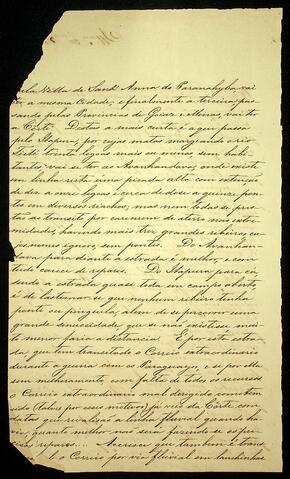 pela Villa de Sant'Anna do Paranahyba, vai
á mesma Cidade, e finalmente a terceira, pas
sando pelas Provincias de Goiaz e Minas, vai ter
á Côrte. Destas a mais curta é a que passa
pelo Itapura; por cujas matas margeando o rio
Tieté trinta legoas mais ou menos sem habi
tantes, vai se ter ao Avanhandava; onde existe
em linha recta uma picada alta com extenção
de dez a onze legoas e cerca de doze a quinze pon
tes em diversos riachos, mas nem todas se pres
tão ao transito por carecerem de aterro nas extre
midades, havendo mais tres grandes ribeiros, cu
jos nomes ignoro, sem pontes. Do Avanhan
dava para diante a estrada é melhor, e com
tudo carece de reparos. Do Itapura para cá
sendo a estrada quasi toda em campo aberto,
é de lastimar se que nenhum ribeiro tenha
ponte ou pinguela, alem de se percorrer uma
grande sinuosidade, que se não existisse mui
to menor faria a distancia. É por esta estra
da, que tem transitado o Correio extraordinario
durante a guerra com os Paraguayos, e se por ella
sem melhoramento, com falta de todos os recursos
o Correio extraordinario mal dirigido
por esse motivo, já veio da Côrte com
datas que rivalisão a linha fluvial quando da
qui, quanto melhor não será fazendo se os pre
cisos reparos.... Accresce que tambem é trans
o Correio por via fluvial em lanchinhas